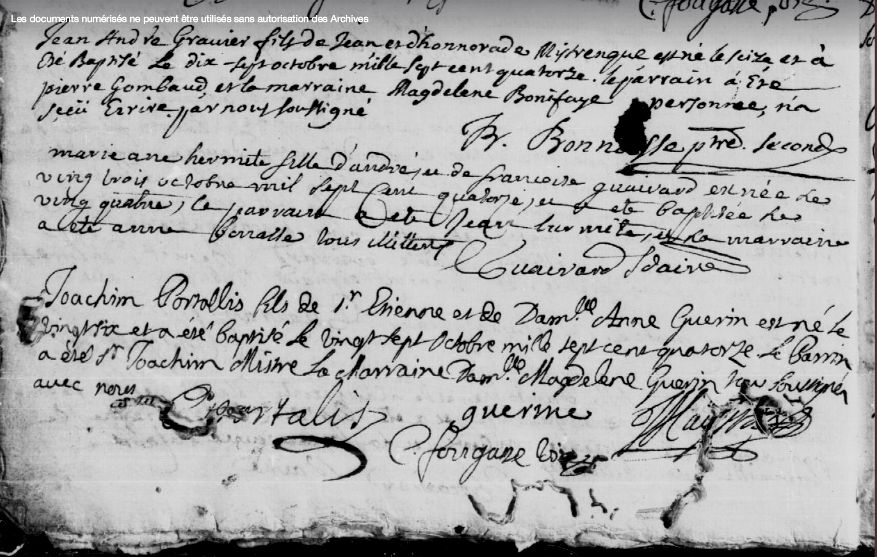 Les documents numérisés ne peuvent être utilisés sans autorisation des Archives
Jean André Gravier fils de Jean et d'honnorade Mistrengue est né le seize et à
Eté Baptisé Le dix-sept octobre mille sept cent quatorze. le parrain à Ete
pierre Gombaud, et la marraine Magdelene Bonifaye personnee, n'a
sceü Ecrire. par nous soussigné
Br. Bonn ptre. Second
marie ane hermite fille d'andré, e de francoise guairard est née le
ving trois octobre mil sept Cent quatorze, e a ete baptisée le
ving quatre, le parrain a ete Jean, et La marraine
a ete anne tous
Guairard
Joachim Portallis fils de Sr. Etienne et de Dam.lle Anne Guerin est né le
vingtsix et a été baptisé le vingt sept Octobre mille sept cent quatorze Le Parrin
a été Sr. Joachim Mistre La Marraine Dam.lle Magdelene Guerin
avec nous
Portalis guerine